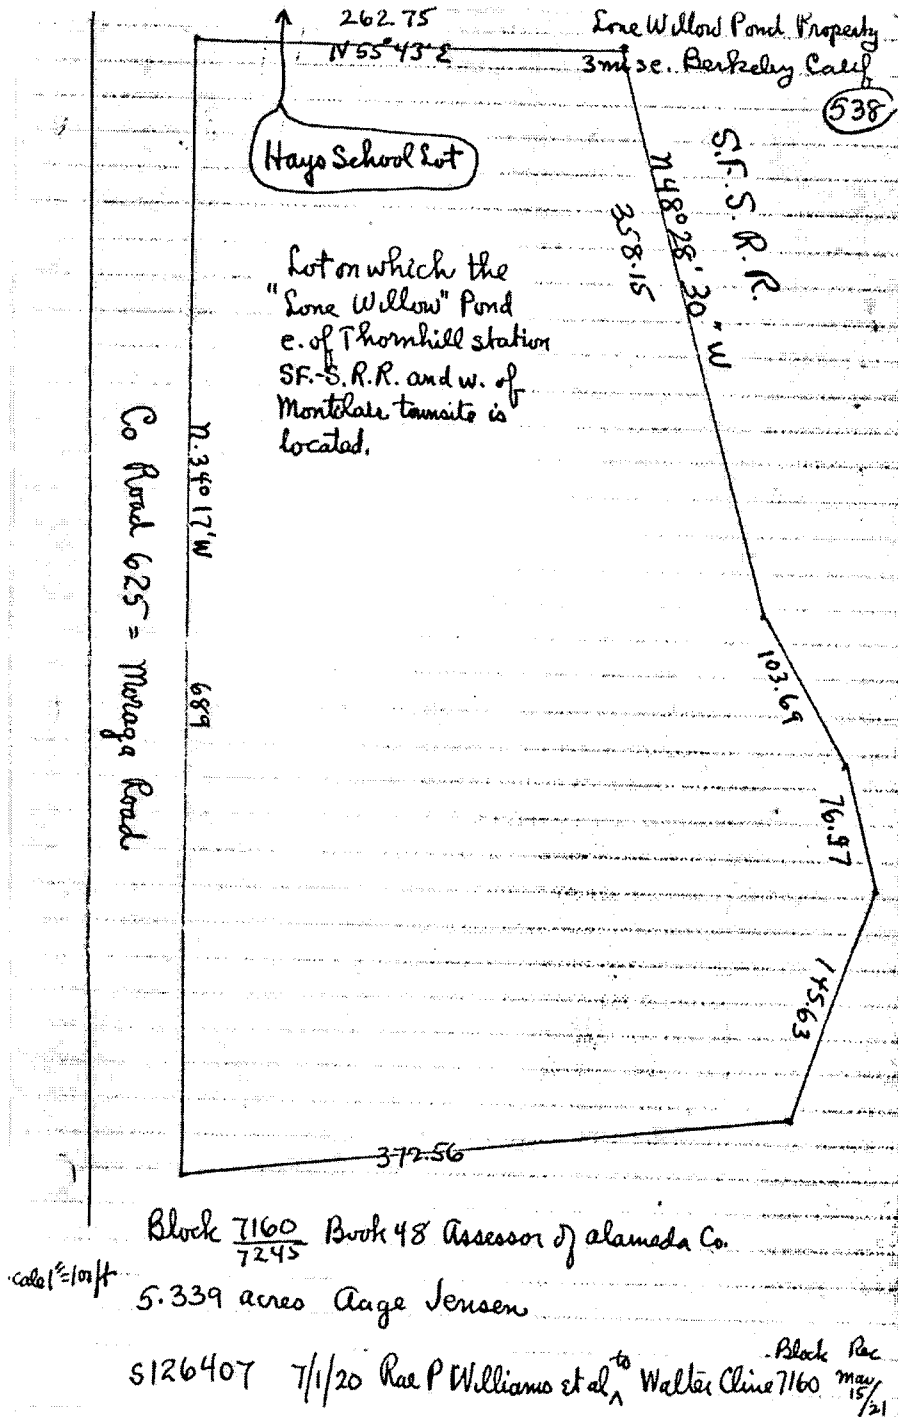 262.75
N 55° 43' E
Lone Willow Pond Property
3 mi se. Berkeley Calif
538
Hays School Lot
S.F. S. R. R.
N 48° 28' 30" W
358.15
Lot on which the
"Lone Willow" Pond
e. of Thornhill station
SF.-S.R.R. and w. of
Montclair townsite is
located.
Co Road 625 = Moraga Road
N. 34° 17' W
689
103.69
76.97
145.63
372.56
Block 7160/7245 Book 48 Assessor of Alameda Co.
cale 1"=100 ft
5.339 acres Aage Jensen
S126407 7/1/20 Rae P Williams et al ^to Walter Cline Block 7160 Rec May 15/21